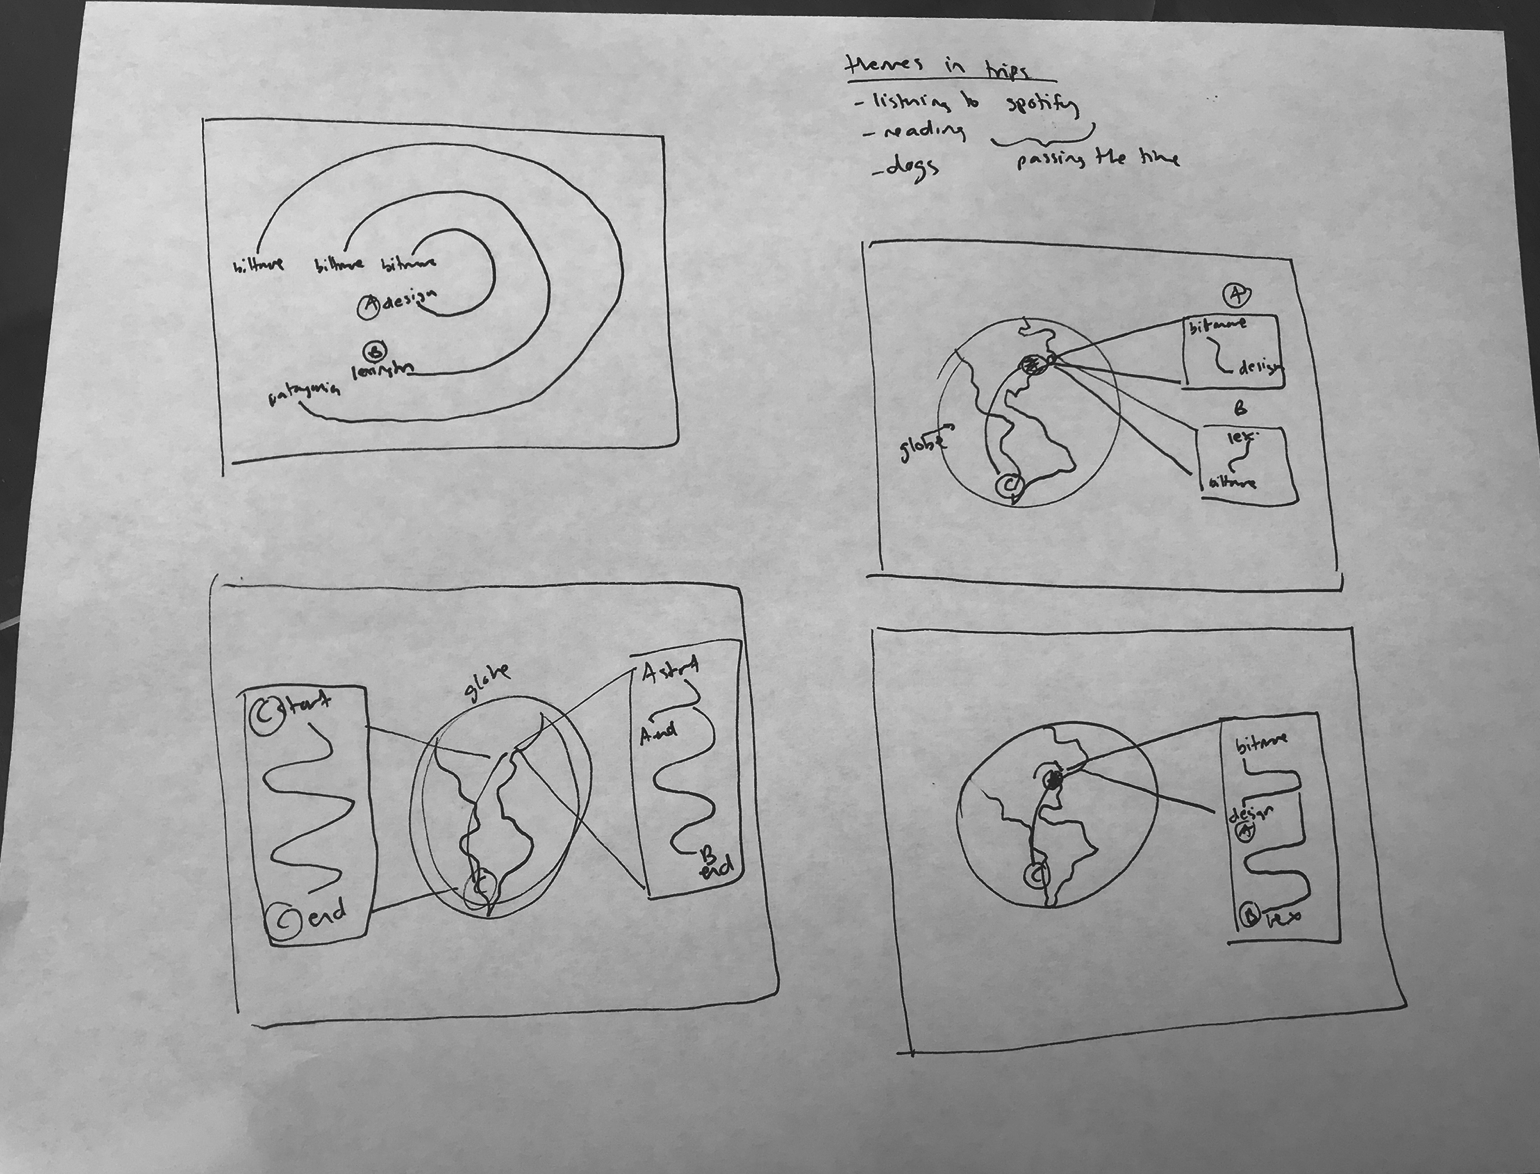 themes in trips
- listning to spotify
- reading
- dogs
passing the time
biltmore biltmore bitmore
A design
B
lexington
patagonia
A
bitmore
design
B
lex.
biltmore
globe
C
globe
C start
C end
C
A start
A end
B
end
bitmore
design
A
B lex
C